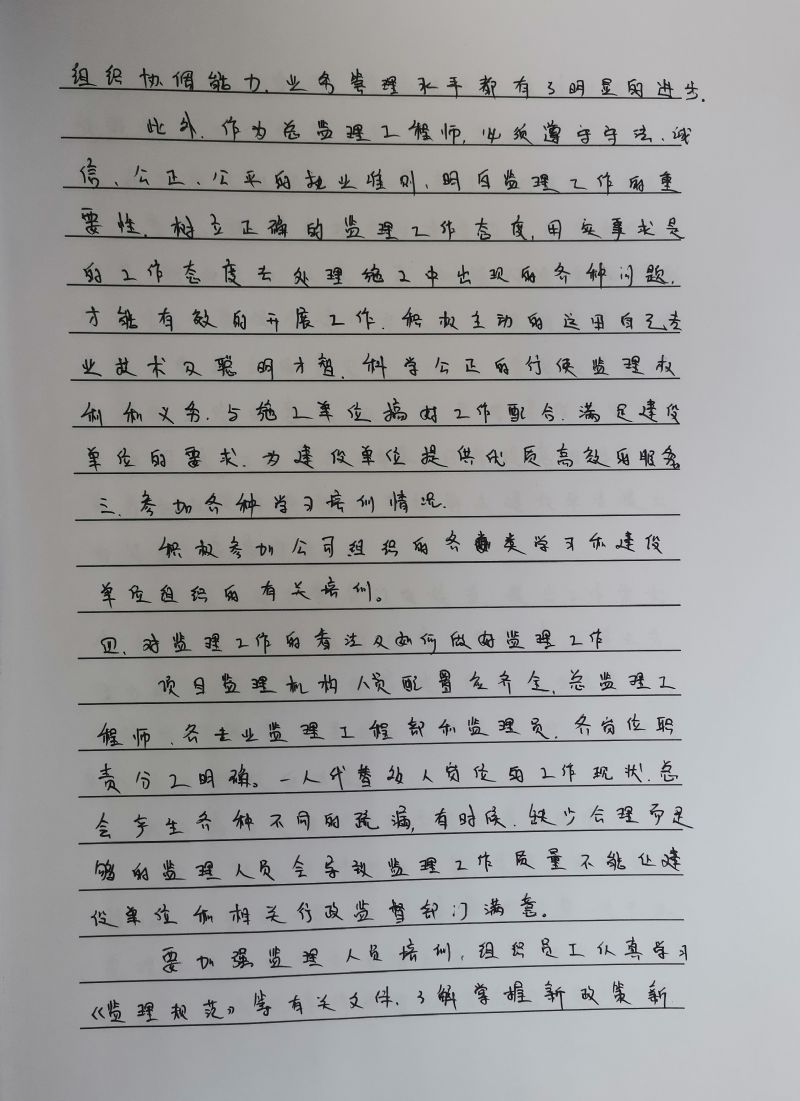 组织协调能力、业务管理水平都有了明显的进步.
此外,作为总监理工程师,必须遵守守法、诚
信、公正、公平的执业准则,明白监理工作的重
要性,树立正确的监理工作态度,用实事求是
的工作态度去处理施工中出现的各种问题,
才能有效的开展工作.积极主动的运用自己专
业技术及聪明才智,科学公正的行使监理权
利和义务,与施工单位搞好工作配合,满足建设
单位的要求,为建设单位提供优质高效的服务
三.参加各种学习培训情况.
积极参加公司组织的各类学习和建设
单位组织的有关培训。
四、对监理工作的看法及如何做好监理工作
项目监理机构人员配置应齐全,总监理工
程师、各专业监理工程部和监理员,各岗位职
责分工明确。一人代替数人岗位的工作现状,总
会产生各种不同的疏漏,有时候,缺少合理而足
够的监理人员会导致监理工作质量不能让建
设单位和相关行政监督部门满意。
要加强监理人员培训,组织员工认真学习
《监理规范》等有关文件,了解掌握新政策新